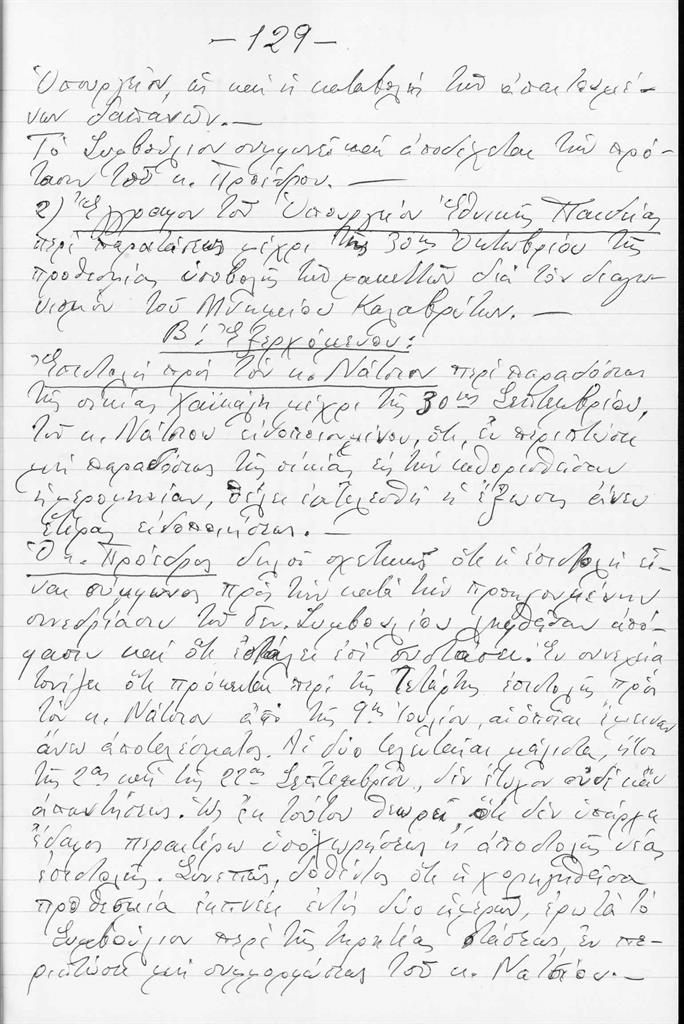 - 129 -
Ὑπουργεῖον, ὡς καὶ ἡ καταβολὴ τῶν ἀπαιτουμέ-
νων δαπανῶν. —
Τὸ Συμβούλιον συμφωνεῖ καὶ ἀποδέχεται τὴν πρό-
τασιν τοῦ κ. Προέδρου. —
2) Ἔγγραφον τοῦ Ὑπουργείου Ἐθνικῆς Παιδείας
περὶ παρατάσεως μέχρι τῆς 30ης Ὀκτωβρίου τῆς
προθεσμίας ὑποβολῆς τῶν μακεττῶν διὰ τὸν διαγω-
νισμὸν τοῦ Μνημείου Καλαβρύτων. —
Β! Ἐξερχόμενον:
Ἐπιστολὴ πρὸς τὸν κ. Νάτσιον περὶ παραδόσεως
τῆς οἰκίας Χαϊκάλη μέχρι τῆς 30ης Σεπτεμβρίου,
τοῦ κ. Νάτσιου εἰδοποιουμένου, ὅτι, ἐν περιπτώσει
μὴ παραδόσεως τῆς οἰκίας εἰς τὴν καθορισθεῖσαν
ἡμερομηνίαν, θέλει ἐκτελεσθῆ ἡ ἔξωσις ἄνευ
ἑτέρας εἰδοποιήσεως. —
Ὁ κ. Πρόεδρος δηλοῖ σχετικῶς ὅτι ἡ ἐπιστολὴ εἶ-
ναι σύμφωνος πρὸς τὴν κατὰ τὴν προηγουμένην
συνεδρίασιν τοῦ Δεν. Συμβουλίου ληφθεῖσαν ἀπό-
φασιν καὶ ὅτι ἐστάλει ἐπὶ συστάσει. Ἐν συνεχείᾳ
τονίζει ὅτι πρόκειται περὶ τῆς Τετάρτης ἐπιστολῆς πρὸς
τὸν κ. Νάτσιον ἀπὸ τῆς 9ης Ἰουλίου, αἱ ὁποῖαι ἔμειναν
ἄνευ ἀποτελέσματος. Αἱ δύο τελευταῖαι μάλιστα, ἤτοι
τῆς 2ας καὶ τῆς 22ας Σεπτεμβρίου, δὲν ἔτυχον οὐδὲ κἂν
ἀπαντήσεως. Ὡς ἐκ τούτου θεωρεῖ ὅτι δὲν ὑπάρχει
ἔδαφος περαιτέρω ὑποχωρήσεως ἢ ἀποστολῆς νέας
ἐπιστολῆς. Συνεπῶς, δοθέντος ὅτι ἡ χορηγηθεῖσα
προθεσμία ἐκπνέει ἐντὸς δύο ἡμερῶν, ἐρωτᾶ τὸ
Συμβούλιον περὶ τῆς τηρητέας στάσεως, ἐν πε-
ριπτώσει μὴ συμμορφώσεως τοῦ κ. Νατσίου. —